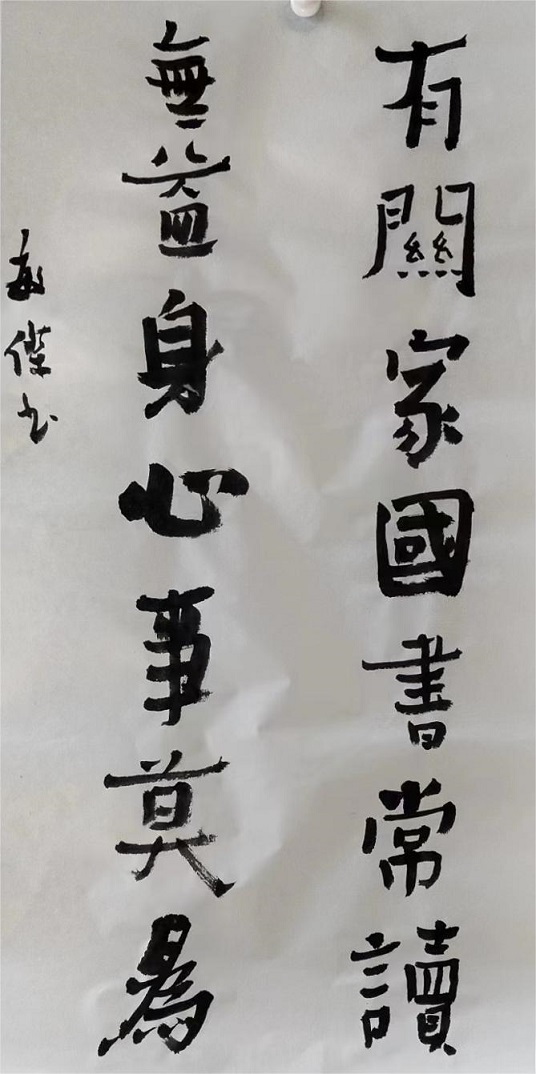 有關家國書常讀
無益身心事莫為
敏傑书